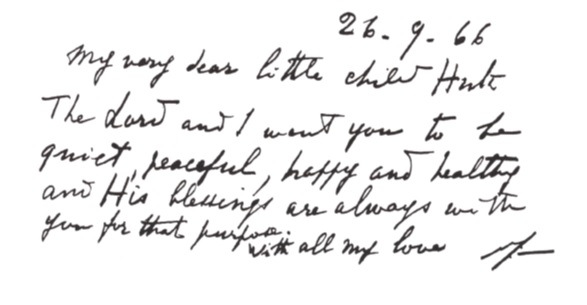 26.9.66
My very dear little child Huta
The Lord and I want you to be
quiet, peaceful, happy and healthy
and His blessings are always with
you for that purpose.
With all my love